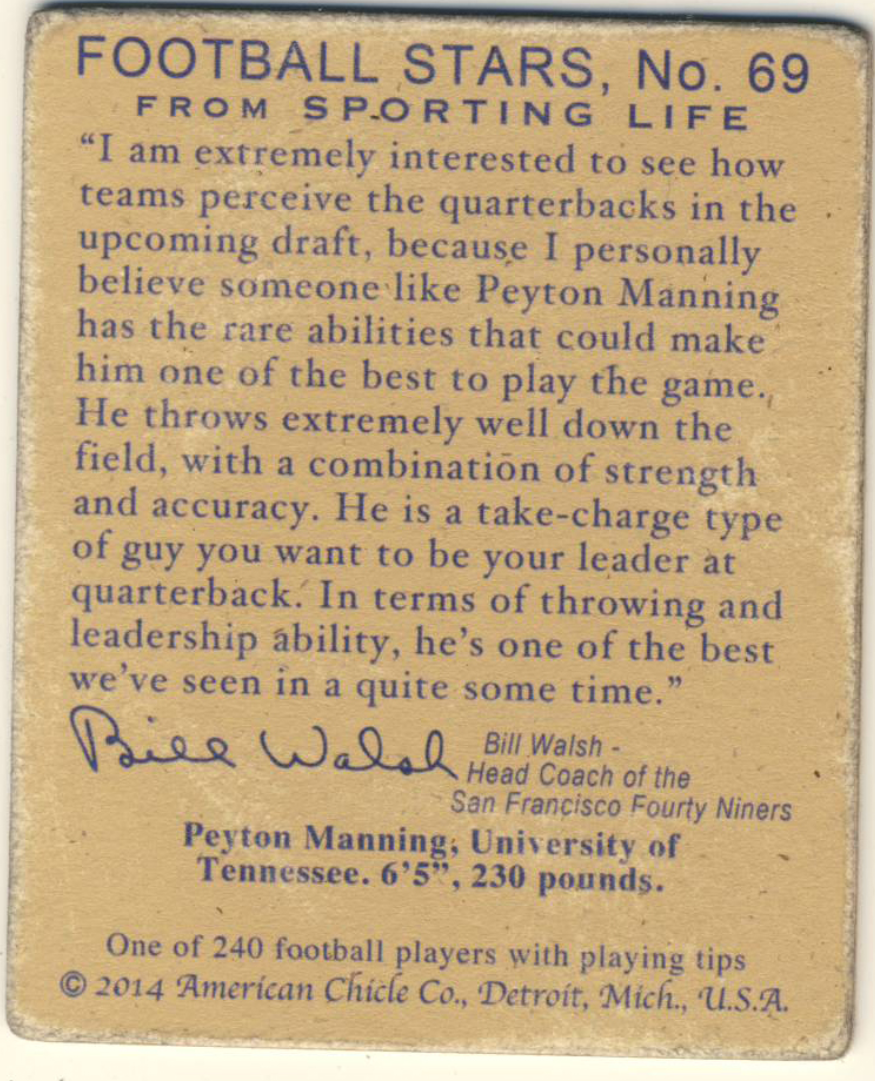 FOOTBALL STARS, No. 69
FROM SPORTING LIFE
“I am extremely interested to see how
teams perceive the quarterbacks in the
upcoming draft, because I personally
believe someone like Peyton Manning
has the rare abilities that could make
him one of the best to play the game.
He throws extremely well down the
field, with a combination of strength
and accuracy. He is a take-charge type
of guy you want to be your leader at
quarterback. In terms of throwing and
leadership ability, he’s one of the best
we’ve seen in a quite some time.”
Bill Walsh
Bill Walsh -
Head Coach of the
San Francisco Fourty Niners
Peyton Manning, University of
Tennessee. 6’5”, 230 pounds.
One of 240 football players with playing tips
© 2014 American Chicle Co., Detroit, Mich., U.S.A.